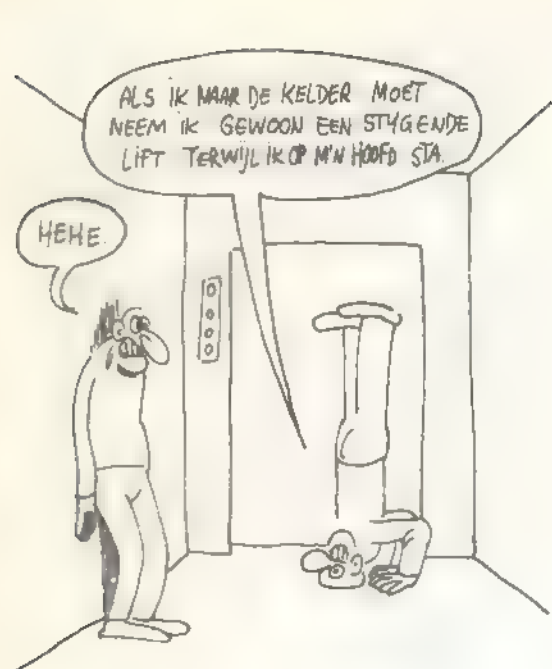 ALS IK NAAR DE KELDER MOET
NEEM IK GEWOON EEN STYGENDE
LIFT TERWIJL IK OP M'N HOOFD STA.
HEHE.